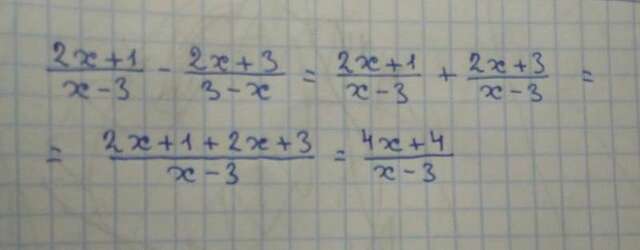 \frac{2x+1}{x-3} - \frac{2x+3}{3-x} = \frac{2x+1}{x-3} + \frac{2x+3}{x-3} =
= \frac{2x+1+2x+3}{x-3} = \frac{4x+4}{x-3}